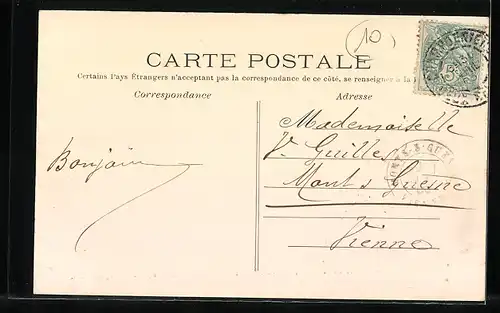 10
CARTE POSTALE
Certains Pays Étrangers n'acceptant pas la correspondance de ce côté, se renseigner à la
Correspondance
Adresse
Bonjour
Mademoiselle
V. Guilles
Mont s Guesne
Vienne